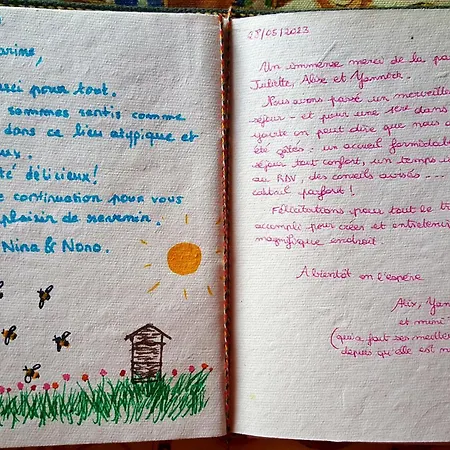 arine,
ci pour tout.
sommes sentis comme
dans ce lieu atypique et
ux.
té délicieux!
e continuation pour vous
plaisir de revenir.
Nina & Nono.
28/05/2023
Un immense merci de la pa
Juliette, Alix et Yannick.
Nous avons passé un merveille
séjour - et pour une 1ère dans
yourte on peut dire que nous a
été gâtés : un accueil formidabl
séjour tout confort, un temps i
au RDV, des conseils avisés ...
cocktail parfait !
Félicitations pour tout le tr
accompli pour créer et entretenir
magnifique endroit.
A bientôt on l'espère
Alix, Yan
et mini
(qui a fait ses meilleu
depuis qu'elle est n